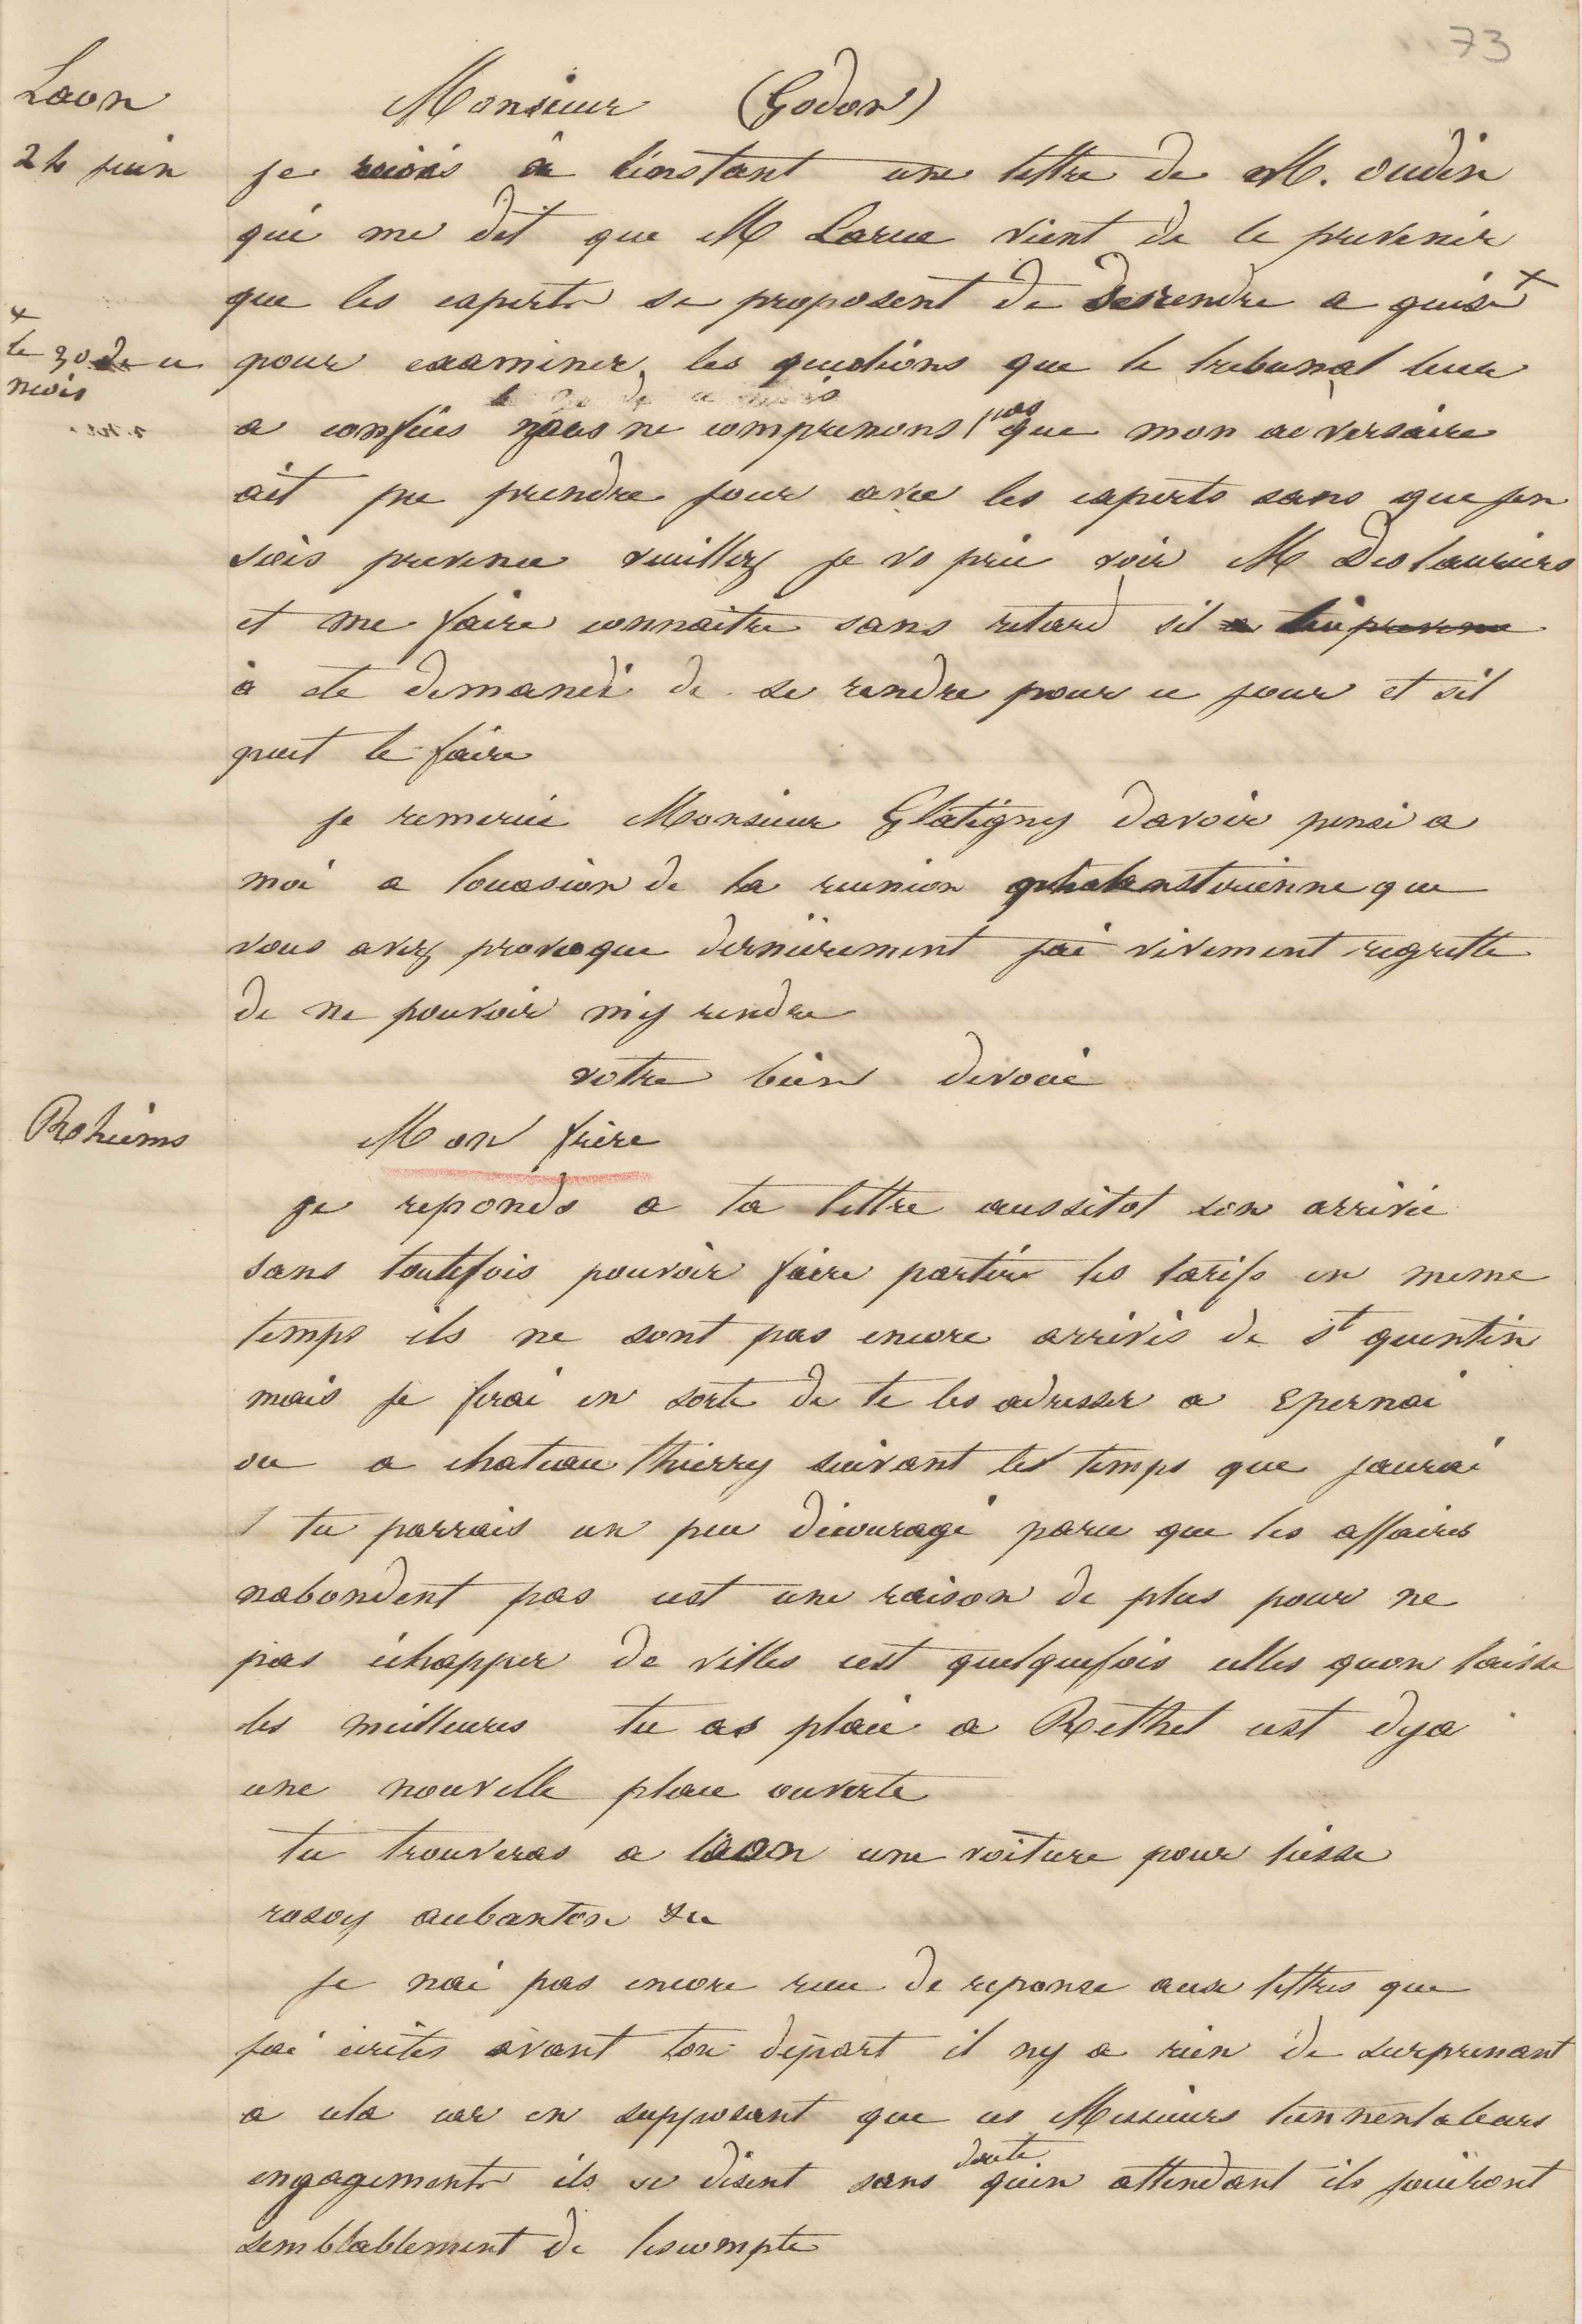 73
Laon
24 juin
Monsieur (Godon)
je reçois a l'instant une lettre de M. oudin
qui me dit que M Larue vient de le prevenir
que les experts se proposent de descendre a guise x
x
le 30 de ce
mois
pour examiner les questions que le tribunal leur
a confiées nous ne comprenons pas que mon adversaire
ait pu prendre jour avec les experts sans que jen
sois prevenu veuillez je vs prie voir M Deslauriers
et me faire connaitre sans retard sil a été prevenu
a ete demandé de se rendre pour ce jour et sil
peut le faire
je remercie Monsieur Glatigny davoir pensé a
moi a loccasion de la reunion phalansterienne que
vous avez provoque dernièrement jai vivement regrette
de ne pouvoir m'y rendre
votre bien devoué
Rheims
Mon frère
je reponds a ta lettre aussitot son arrivée
sans toutefois pouvoir faire partir les tarifs en meme
temps ils ne sont pas encore arrivés de St quentin
mais je ferai en sorte de te les adresser a Epernai
ou a chateau thierry suivant les temps que jaurai
tu parrais un peu découragé parce que les affaires
nabondent pas cest une raison de plus pour ne
pas échapper de villes cest quelquefois celles quon laisse
les meilleures tu as placé a Rethel cest deja
une nouvelle place ouverte
tu trouveras a laon une voiture pour liesse
rosoy aubanton &c
je nai pas encore recu de reponse aux lettres que
jai écrites avant ton départ il ny a rien de surprenant
a cela car en supposant que ces Messieurs tiennent a leurs
engagements ils se disent sans doute quen attendant ils jouiront
semblablement de lescompte